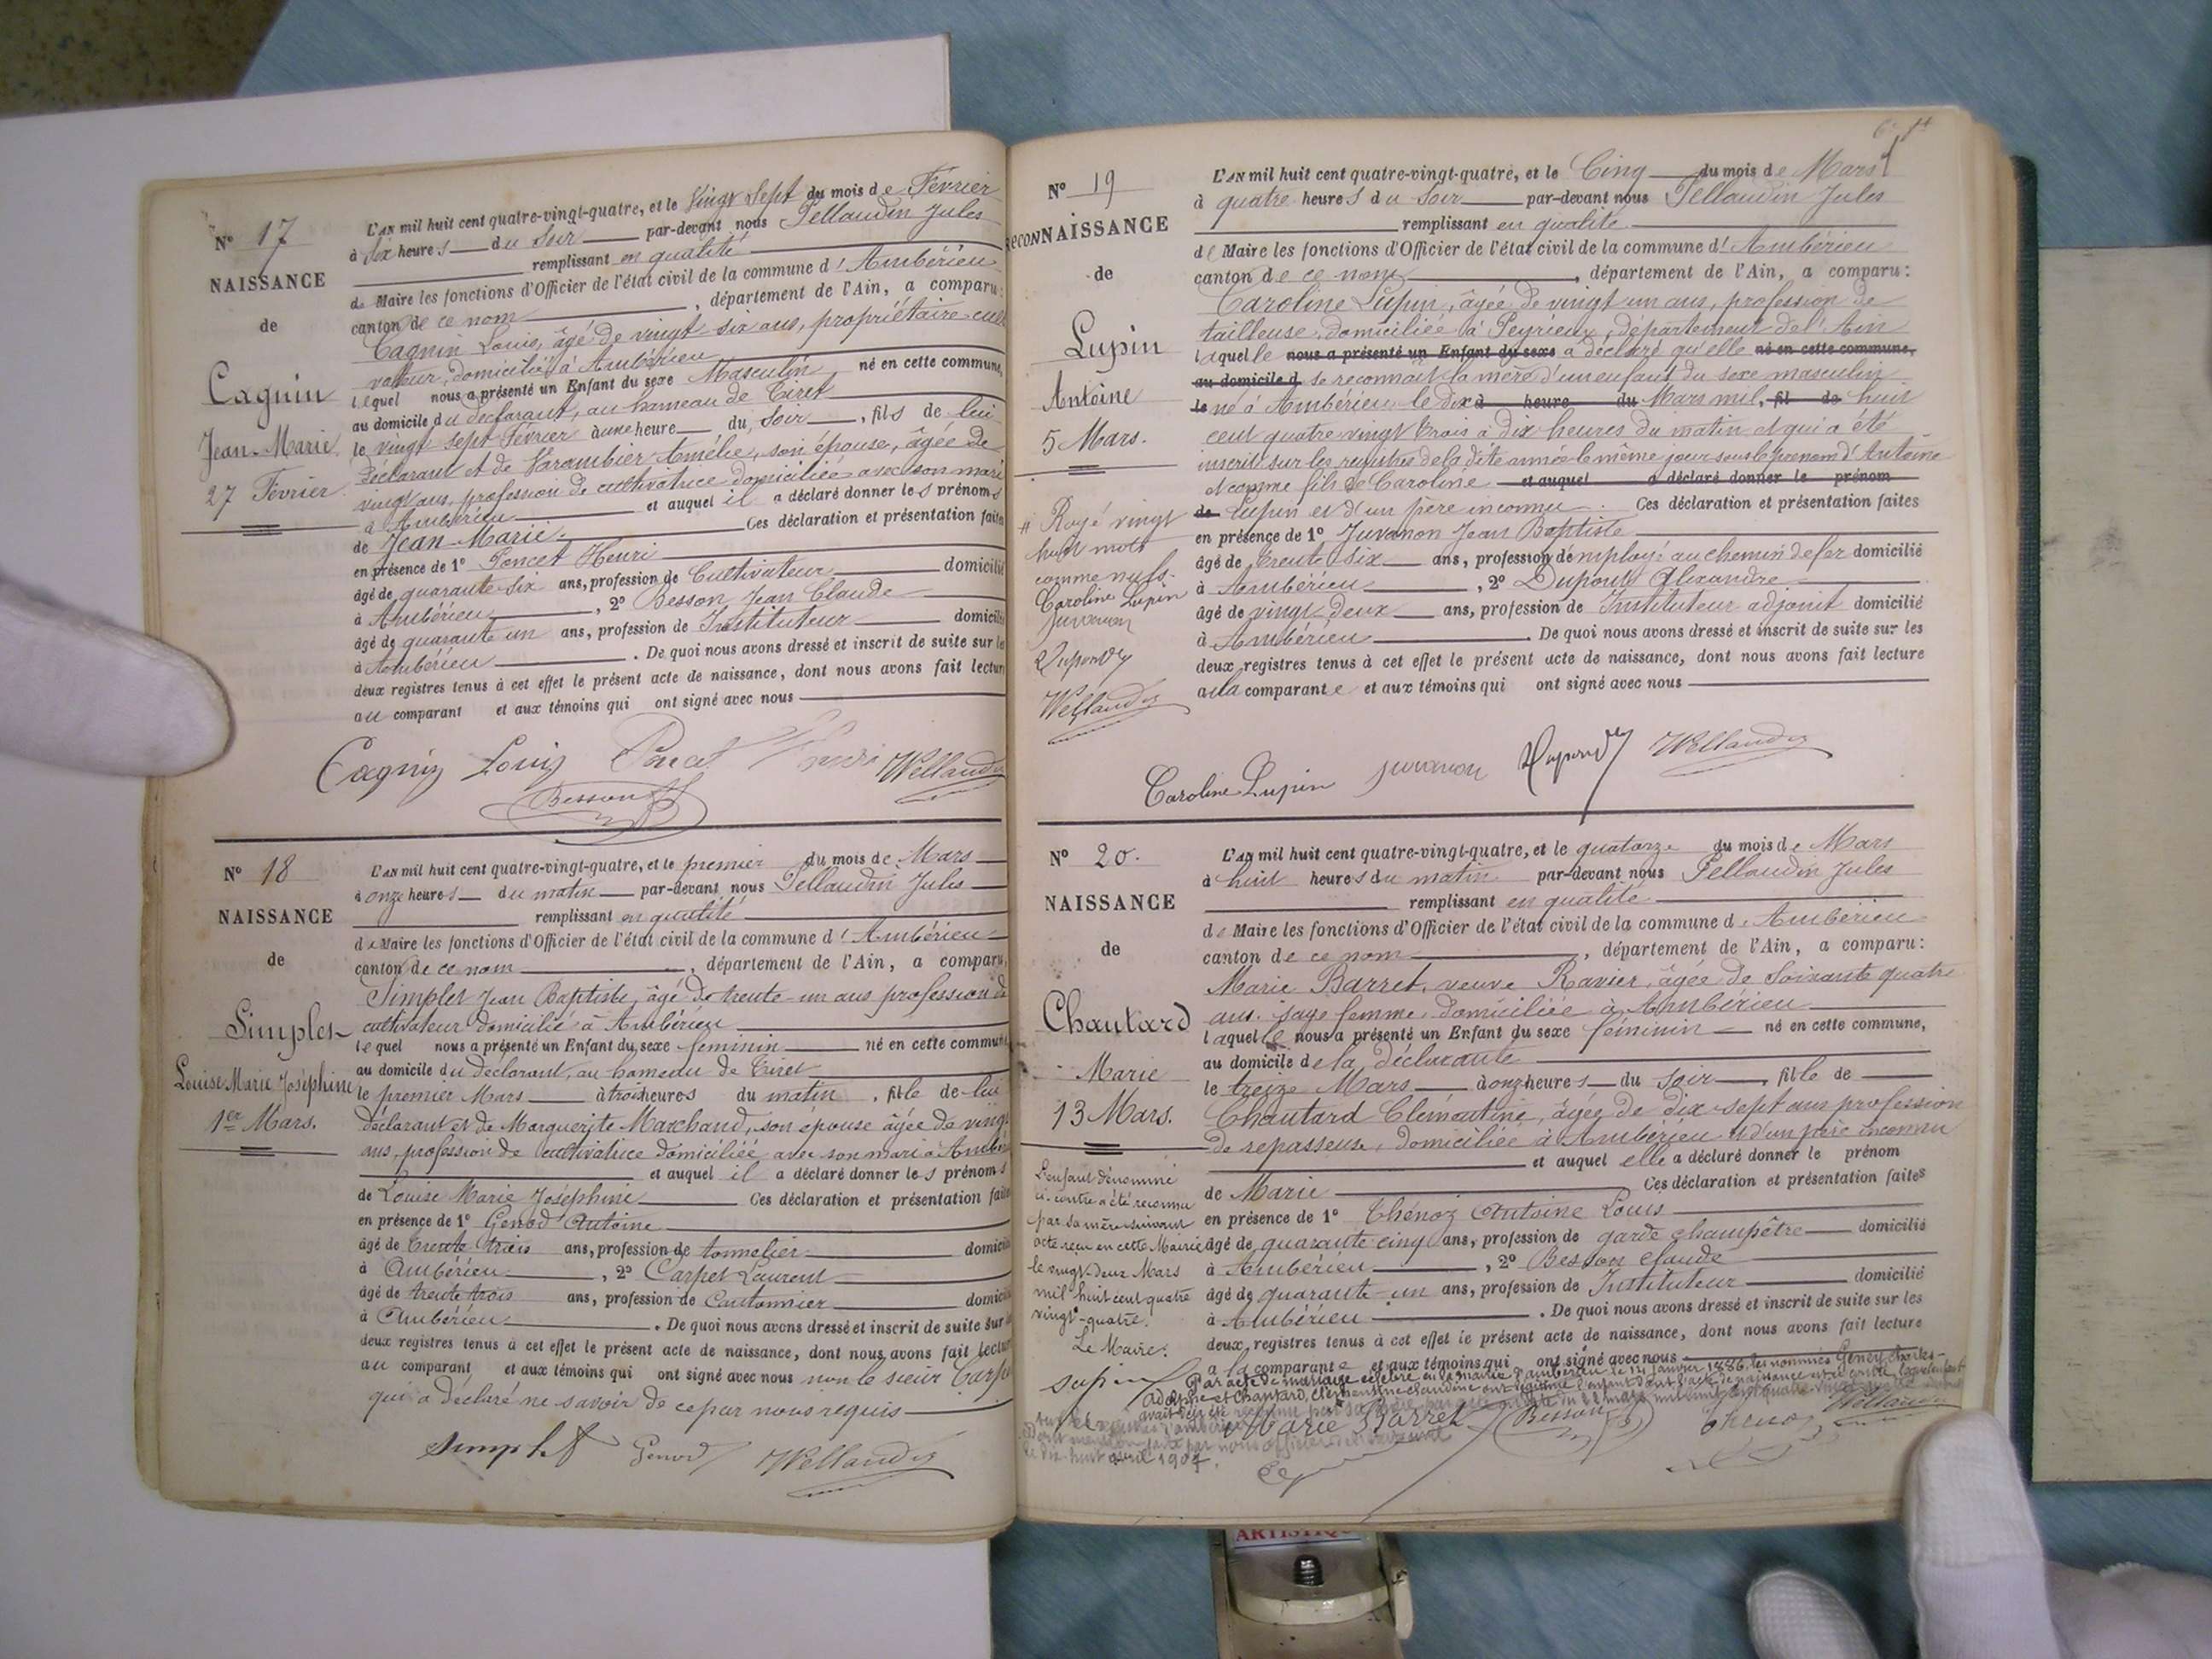 N° 17
NAISSANCE
de
Cagnin
Jean-Marie
27 Février
L'AN mil huit cent quatre-vingt-quatre, et le Vingt Sept du mois de Février
à Six heures du Soir par-devant nous Pellaudin Jules
remplissant en qualité
de Maire les fonctions d'Officier de l'état civil de la commune d'Ambérieu
canton de ce nom, département de l'Ain, a comparu:
Cagnin Louis, âgé de vingt-six ans, propriétaire-culti
vateur, domicilié à Ambérieu
lequel nous a présenté un Enfant du sexe Masculin né en cette commune,
au domicile du déclarant, au hameau de Tiret
le vingt sept Février à une heure du Soir, fils de lui
déclarant et de Varambier Amélie, son épouse, âgée de
vingt ans, profession de cultivatrice domiciliée avec son mari
à Ambérieu et auquel il a déclaré donner les prénoms
de Jean-Marie. Ces déclaration et présentation faites
en présence de 1° Poncet Henri
âgé de quarante-six ans, profession de Cultivateur domicilié
à Ambérieu, 2° Besson Jean Claude
âgé de quarante un ans, profession de Instituteur domicilié
à Ambérieu. De quoi nous avons dressé et inscrit de suite sur les
deux registres tenus à cet effet le présent acte de naissance, dont nous avons fait lecture
au comparant et aux témoins qui ont signé avec nous
Cagnin Louis Poncet Henri JPellaudin
Besson
N° 18
NAISSANCE
de
Simplet
Louise Marie Joséphine
1er Mars.
L'AN mil huit cent quatre-vingt-quatre, et le premier du mois de Mars
à onze heures du matin par-devant nous Pellaudin Jules
remplissant en qualité
de Maire les fonctions d'Officier de l'état civil de la commune d'Ambérieu
canton de ce nom, département de l'Ain, a comparu,
Simplet Jean Baptiste, âgé de trente-un ans profession de
cultivateur domicilié à Ambérieu
lequel nous a présenté un Enfant du sexe féminin né en cette commune
au domicile du déclarant, au hameau de Tiret
le premier Mars à trois heures du matin, fille de lui
déclarant et de Marguerite Marchand, son épouse âgée de vingt
ans, profession de cultivatrice domiciliée avec son mari à Ambérieu
et auquel il a déclaré donner les prénoms
de Louise Marie Joséphine Ces déclaration et présentation faites
en présence de 1° Genod Antoine
âgé de trente trois ans, profession de tonnelier domicilié
à Ambérieu, 2° Carpet Laurent
âgé de trente trois ans, profession de Cantonnier domicilié
à Ambérieu. De quoi nous avons dressé et inscrit de suite sur les
deux registres tenus à cet effet le présent acte de naissance, dont nous avons fait lecture
au comparant et aux témoins qui ont signé avec nous non le sieur Carpet
qui a déclaré ne savoir de ce par nous requis
Simplet Genod JPellaudin
N° 19
RECONNAISSANCE
de
Lupin
Antoine
5 Mars.
# Rayé vingt
huit mots
comme nuls.
Caroline Lupin
Juvanon
Dupont
JPellaudin
L'AN mil huit cent quatre-vingt-quatre, et le Cinq du mois de Mars
à quatre heures du Soir par-devant nous Pellaudin Jules
remplissant en qualité
de Maire les fonctions d'Officier de l'état civil de la commune d'Ambérieu
canton de ce nom, département de l'Ain, a comparu:
Caroline Lupin, âgée de vingt un ans, profession de
tailleuse, domiciliée à Peyrieux, département de l'Ain
laquelle nous a présenté un Enfant du sexe a déclaré qu'elle né en cette commune,
au domicile d se reconnait la mère d'un enfant du sexe masculin
le né à Ambérieu le dix à heure du Mars mil, fil de huit
cent quatre vingt trois à dix heures du matin et qui a été
inscrit sur les registres de la dite année le même jour sous le prénom d'Antoine
et comme fils de Caroline et auquel a déclaré donner le prénom
de Lupin et d'un père inconnu. Ces déclaration et présentation faites
en présence de 1° Juvanon Jean Baptiste
âgé de trente six ans, profession d'employé au chemin de fer domicilié
à Ambérieu, 2° Dupont Alexandre
âgé de vingt-deux ans, profession de Instituteur adjoint domicilié
à Ambérieu. De quoi nous avons dressé et inscrit de suite sur les
deux registres tenus à cet effet le présent acte de naissance, dont nous avons fait lecture
à la comparante et aux témoins qui ont signé avec nous
Caroline Lupin Juvanon Dupont JPellaudin
N° 20.
NAISSANCE
de
Chautard
Marie
13 Mars.
L'enfant dénommé
ci-contre a été reconnu
par sa mère suivant
acte reçu en cette Mairie
le vingt-deux Mars
mil huit cent quatre
vingt-quatre.
Le Maire:
L'AN mil huit cent quatre-vingt-quatre, et le quatorze du mois de Mars
à huit heures du matin par-devant nous Pellaudin Jules
remplissant en qualité
de Maire les fonctions d'Officier de l'état civil de la commune d'Ambérieu
canton de ce nom, département de l'Ain, a comparu:
Marie Barret, veuve Ravier, âgée de Soixante quatre
ans. Sage femme, domiciliée à Ambérieu
laquelle nous a présenté un Enfant du sexe féminin né en cette commune,
au domicile de la déclarante
le treize Mars à onze heures du Soir, fille de
Chautard Clémentine, âgée de dix-sept ans profession
de repasseuse, domiciliée à Ambérieu et d'un père inconnu
et auquel elle a déclaré donner le prénom
de Marie Ces déclaration et présentation faites
en présence de 1° Thénoz Antoine Louis
âgé de quarante cinq ans, profession de garde champêtre domicilié
à Ambérieu, 2° Besson Claude
âgé de quarante-un ans, profession de Instituteur domicilié
à Ambérieu. De quoi nous avons dressé et inscrit de suite sur les
deux registres tenus à cet effet le présent acte de naissance, dont nous avons fait lecture
à la comparante et aux témoins qui ont signé avec nous
Par acte de mariage célébré en la mairie d'Ambérieu le 14 janvier 1886, les nommés Genery Charles-
Adolphe et Chautard, Clémentine Claudine ont légitimé l'enfant dont l'acte de naissance est ci contre, lequel enfant
avait déjà été reconnu par sa mère
Marie Barret Besson Thenoz JPellaudin
le dix-huit avril 1907.